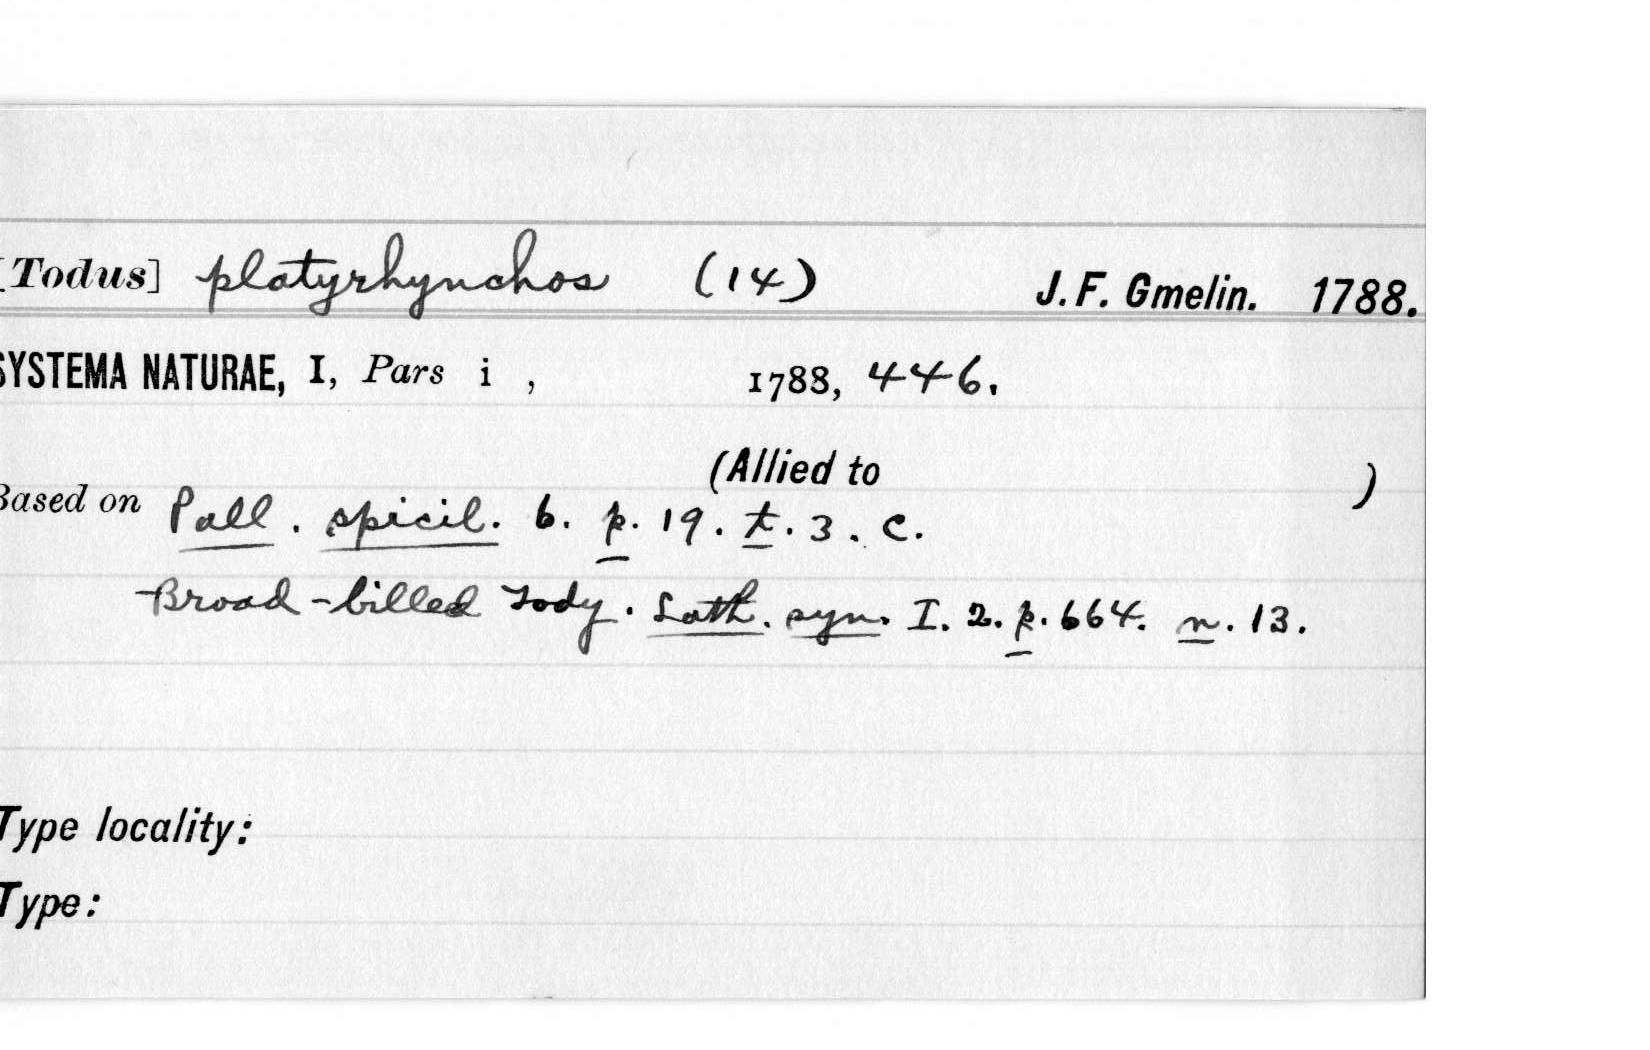 [Todus] platyrhynchos (14) J. F. Gmelin. 1788.
SYSTEMA NATURAE, I, Pars i , 1788, 446.
(Allied to )
Based on Pall. spicil. 6. p. 19. t. 3. C.
Broad-billed Tody. Lath. syn. I. 2. p. 664. n. 13.
Type locality:
Type: